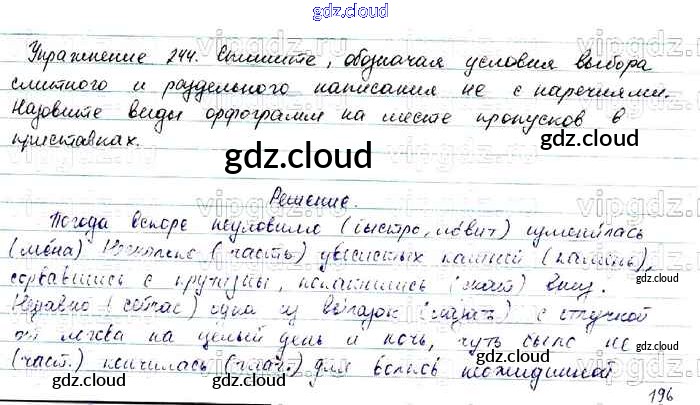 gdz.cloud
Упражнение 244. Спишите, обозначая условия выбора
слитного и раздельного написания не с наречиями.
Назовите виды орфограмм на месте пропусков в
приставках.
gdz.cloud
gdz.cloud
Решение.
Погода вскоре неуловимо (быстро, ловит) изменилась
(мена) (часть) увесистых камней (камень),
сорвавшись с крутизны, покатились вниз.
Недавно (сейчас) одна из вылазок (лазать) с отлучкой
на целый день и ночь, чуть было не
(част.) кончилась (глаг.) для
gdz.cloud
gdz.cloud
gdz.cloud
196